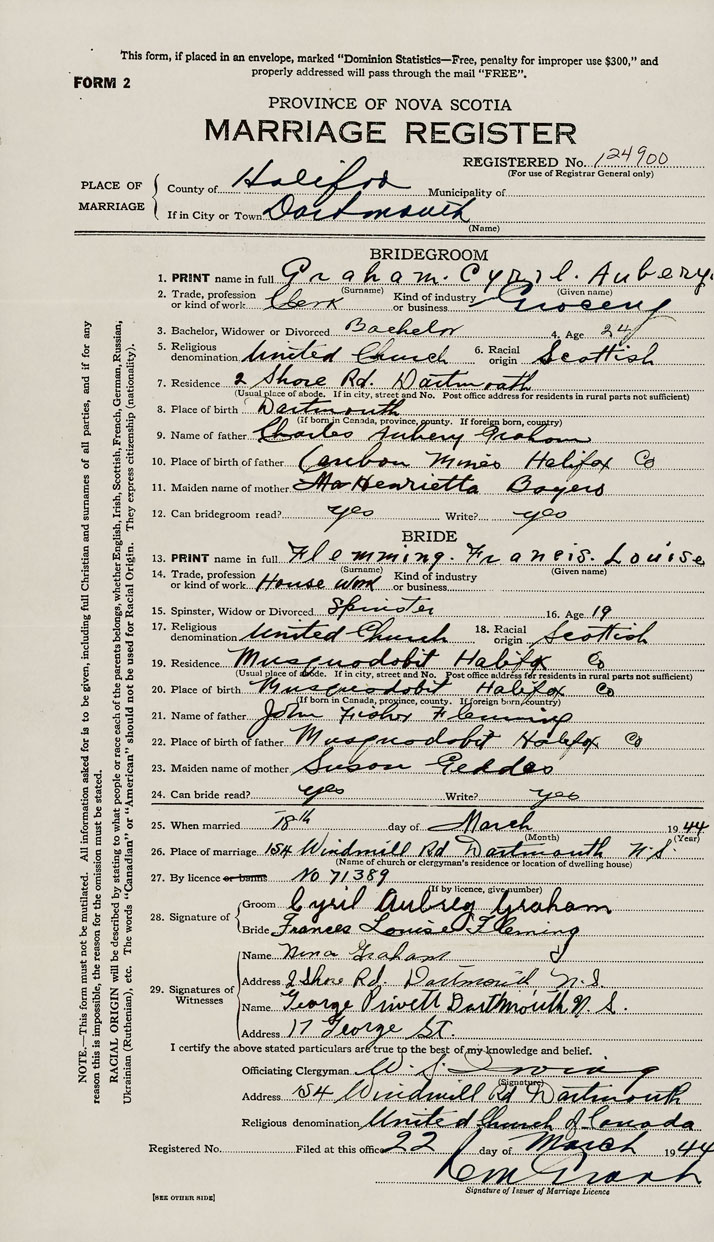 This form, if placed in an envelope, marked "Dominion Statistics—Free, penalty for improper use $300," and
properly addressed will pass through the mail "FREE".
FORM 2
PROVINCE OF NOVA SCOTIA
MARRIAGE REGISTER
REGISTERED No. 124900
(For use of Registrar General only)
PLACE OF MARRIAGE
County of Halifax Municipality of
If in City or Town Dartmouth
(Name)
BRIDEGROOM
1. PRINT name in full Graham. Cyril. Aubery.
(Surname) (Given name)
2. Trade, profession or kind of work Clerk Kind of industry or business Grocery
3. Bachelor, Widower or Divorced Bachelor 4. Age 24
5. Religious denomination United Church 6. Racial origin Scottish
7. Residence 2 Shore Rd. Dartmouth
(Usual place of abode. If in city, street and No. Post office address for residents in rural parts not sufficient)
8. Place of birth Dartmouth
(if born in Canada, province, county. If foreign born, country)
9. Name of father Charles Aubery Graham
10. Place of birth of father Caribou Mines Halifax Co
11. Maiden name of mother Henrietta Bayers
12. Can bridegroom read? yes Write? yes
BRIDE
13. PRINT name in full Flemming. Francis. Louise
(Surname) (Given name)
14. Trade, profession or kind of work House work Kind of industry or business
15. Spinster, Widow or Divorced Spinster 16. Age 19
17. Religious denomination United Church 18. Racial origin Scottish
19. Residence Musquodobit Halifax Co
(Usual place of abode. If in city, street and No. Post office address for residents in rural parts not sufficient)
20. Place of birth Musquodobit Halifax Co
(If born in Canada, province, county. If foreign born, country)
21. Name of father John Fisher Fleming
22. Place of birth of father Musquodobit Halifax Co
23. Maiden name of mother Susan Geddes
24. Can bride read? yes Write? yes
25. When married 18th day of March 1944
(Month) (Year)
26. Place of marriage 154 Windmill Rd Dartmouth N.S.
(Name of church or clergyman's residence or location of dwelling house)
27. By licence or banns No 71389
(If by licence, give number)
28. Signature of
Groom Cyril Aubrey Graham
Bride Frances Louise Fleming
29. Signatures of Witnesses
Name Nina Graham
Address 2 Shore Rd. Dartmouth N.S.
Name George Privett Dartmouth N.S.
Address 17 George St.
I certify the above stated particulars are true to the best of my knowledge and belief.
Officiating Clergyman W. S. Irving
(Signature)
Address 154 Windmill Rd Dartmouth
Religious denomination United Church of Canada
Registered No. Filed at this office 22 day of March 1944
Signature of Issuer of Marriage Licence
[SEE OTHER SIDE]
NOTE.—This form must not be mutilated. All information asked for is to be given, including full Christian and surnames of all parties, and if for any
reason this is impossible, the reason for the omission must be stated.
RACIAL ORIGIN will be described by stating to what people or race each of the parents belongs, whether English, Irish, Scottish, French, German, Russian,
Ukrainian (Ruthenian), etc. The words "Canadian" or "American" should not be used for Racial Origin. They express citizenship (nationality).